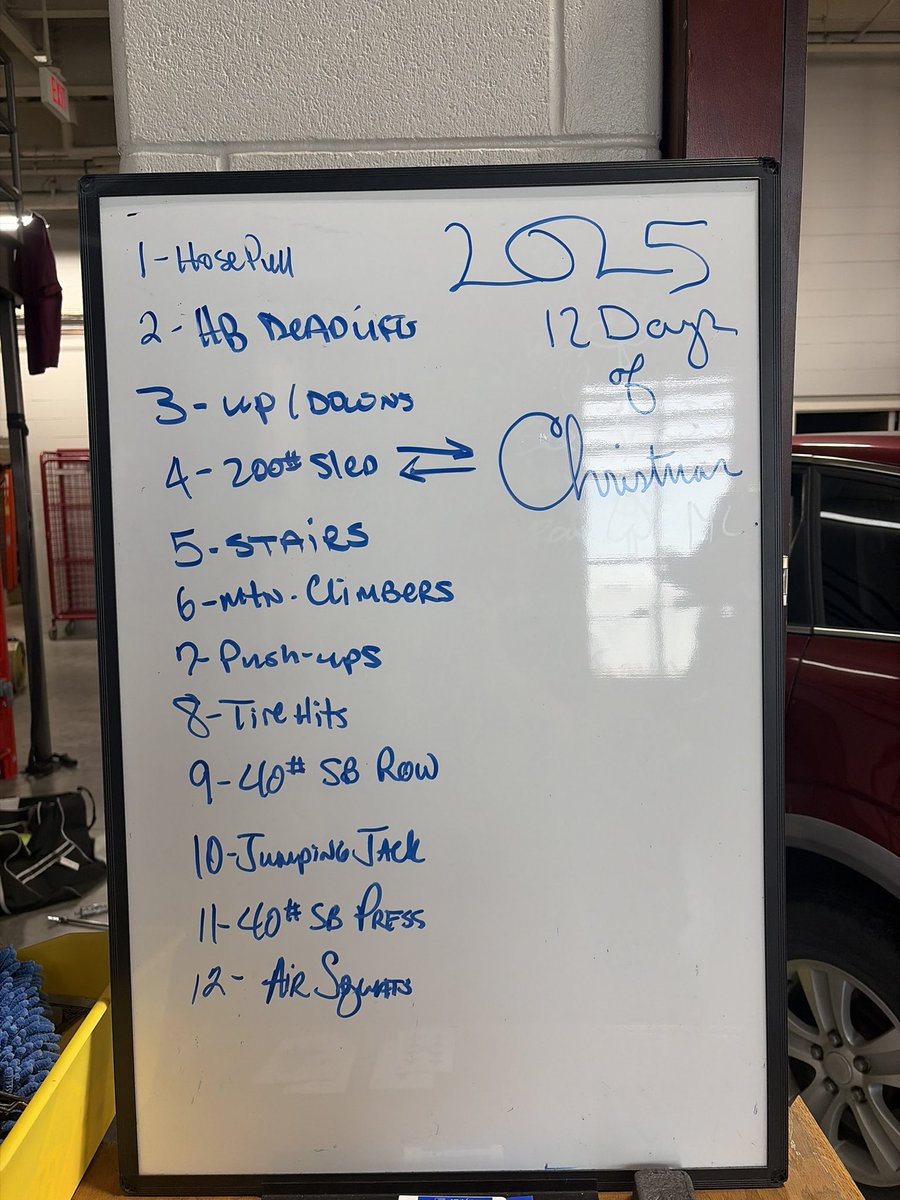 EXIT
2025
12 Days
of
Christmas
1-Hose Pull
2-HB DEADLIFTS
3-UP/DOWNS
4-200# Sled ⇌
5-STAIRS
6-MTN. CLIMBERS
7-Push-ups
8-Tire Hits
9-40# SB ROW
10-JUMPING JACK
11-40# SB PRESS
12- AIR SQUATS